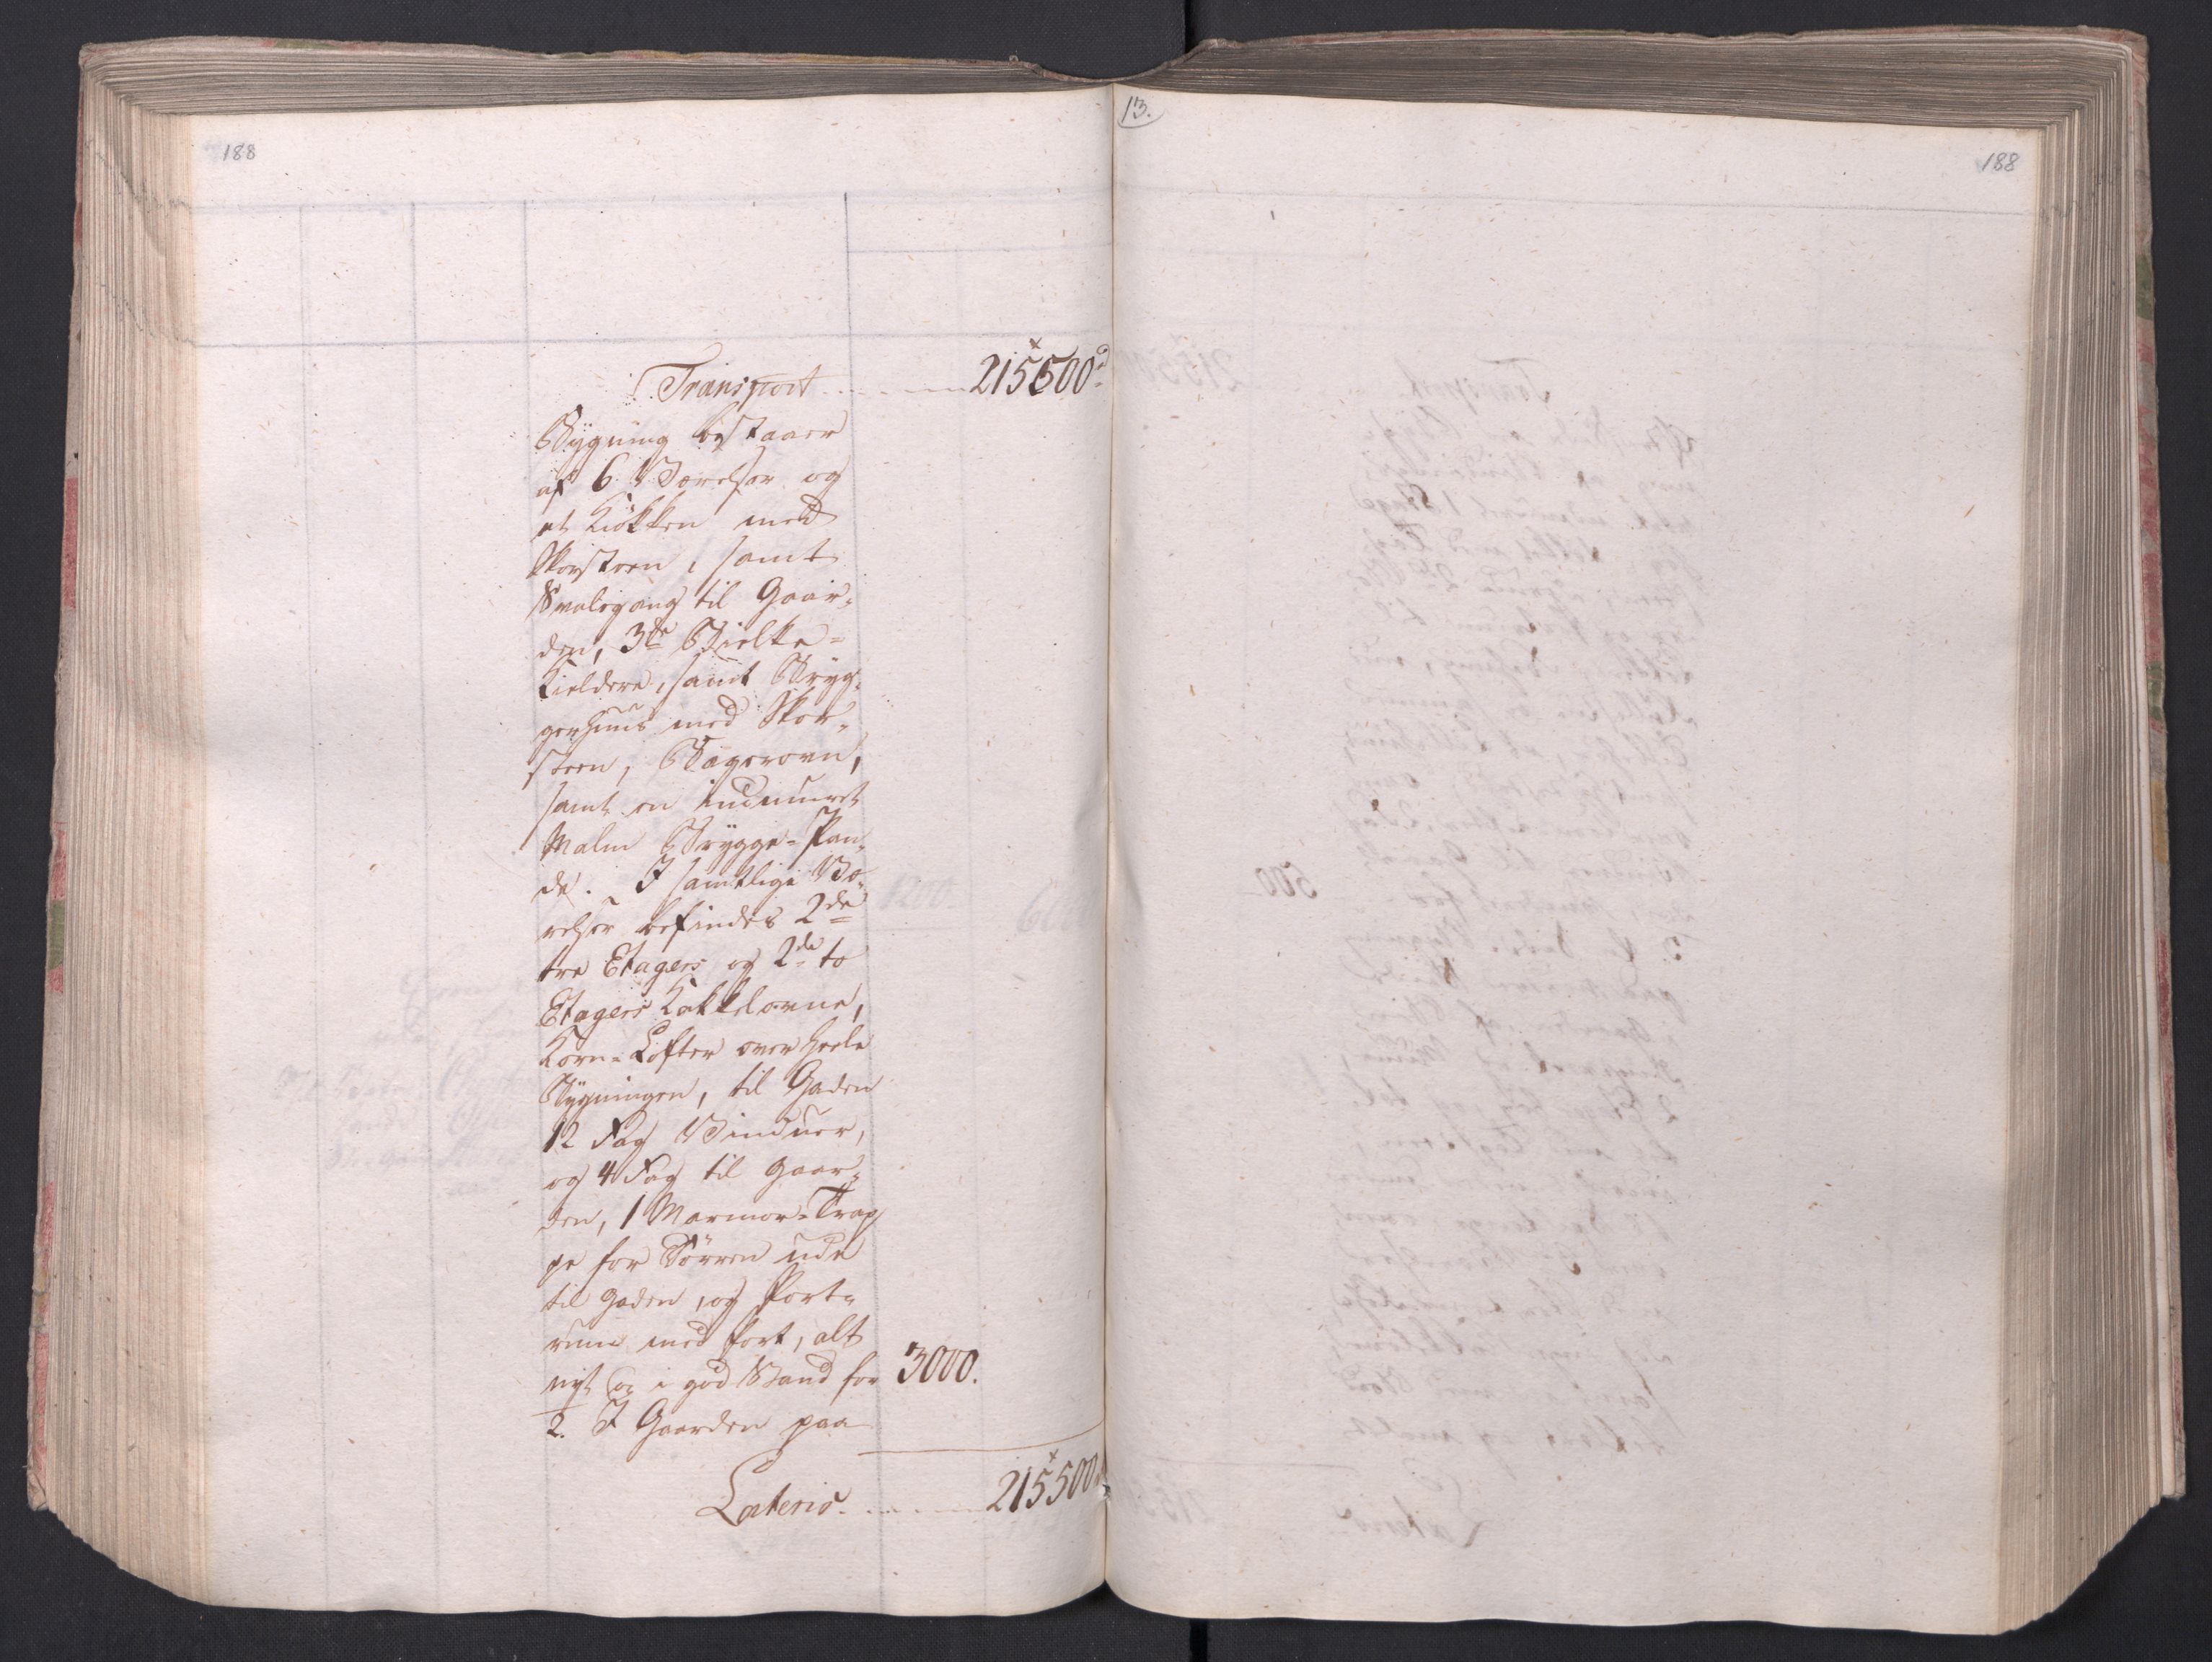 188
Transport . . . . 215500
Bygning bestaaer
af 6 Værelser og
et Kiökken med
Skorsteen, samt
Svalegang til Gaar-
den, 3de Bielke-
Kieldere, samt Bryg-
gerhuus med Skor-
steen, Bagerovn,
samt en indmuret
Malm Brygge-Pan-
de. I samtlige Væ-
relser befindes 2de
tre Etagers og 2de to
Etagers Kakkelovne,
Korn-Lofter over heele
Bygningen, til Gaden
12 Fag Vinduer,
og 4 Fag til Gaar-
den, 1 Marmor-Trap
pe for Dörren ude
til Gaden, og Port-
rum med Port, alt
nyt og i god Stand for 3000.
2. I Gaarden paa
Lateris . . . . 215500
13.
188